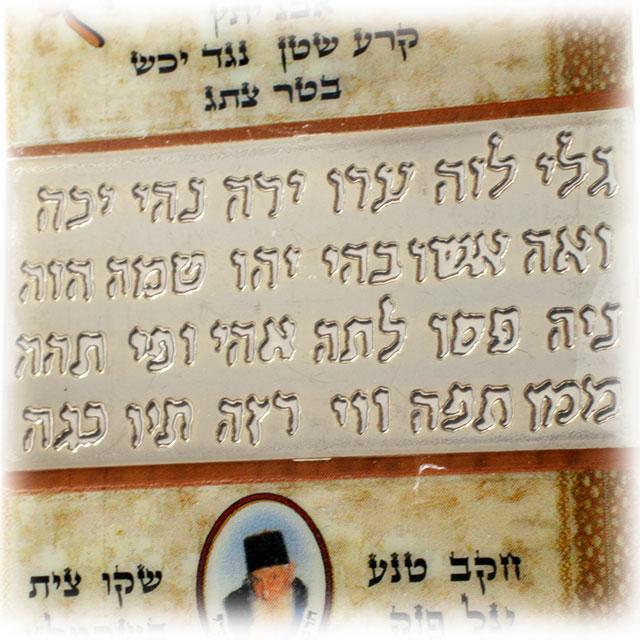 אבג יתץ
קרע שטן נגד יכש
בטר צתג
גלי לוה ערו ירה נהי יכה
ואה אשו בהי יהו טמה הוה
ניה פסו לתה אהי ופי תהה
ממץ תפה ווי רצה תיו כגה
חקב טנע שקו צית
יגל פזק